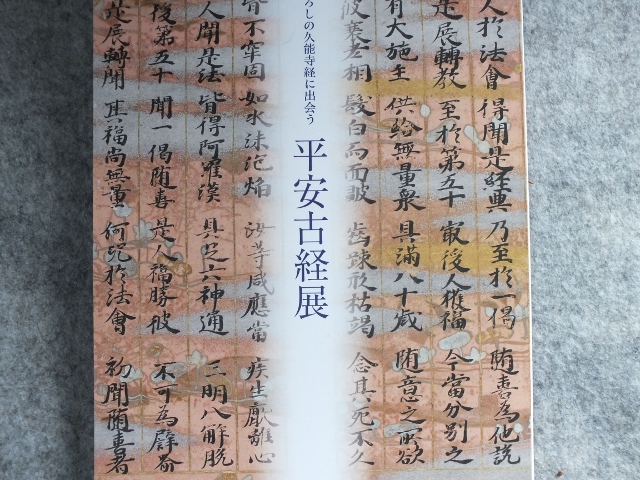 人於法會 得聞是經典 乃至於一偈 随喜為他說
是展轉教 至於第五十 㝡後人獲福 今當分別之
有大施主 供給無量衆 具滿八十歳 随意之所欲
彼衰老相 髮白而面皺 齒踈形枯竭 念其死不久
ろしの久能寺経に出会う
平安古経展
皆不牢固 如水沫泡焔 汝等咸應當 疾生厭離心
人聞是法 皆得阿羅漢 具足六神通 三明八解脱
後第五十 聞一偈随喜 是人福勝彼 不可為譬喻
是展轉聞 其福尚無量 何况於法會 初聞随喜者